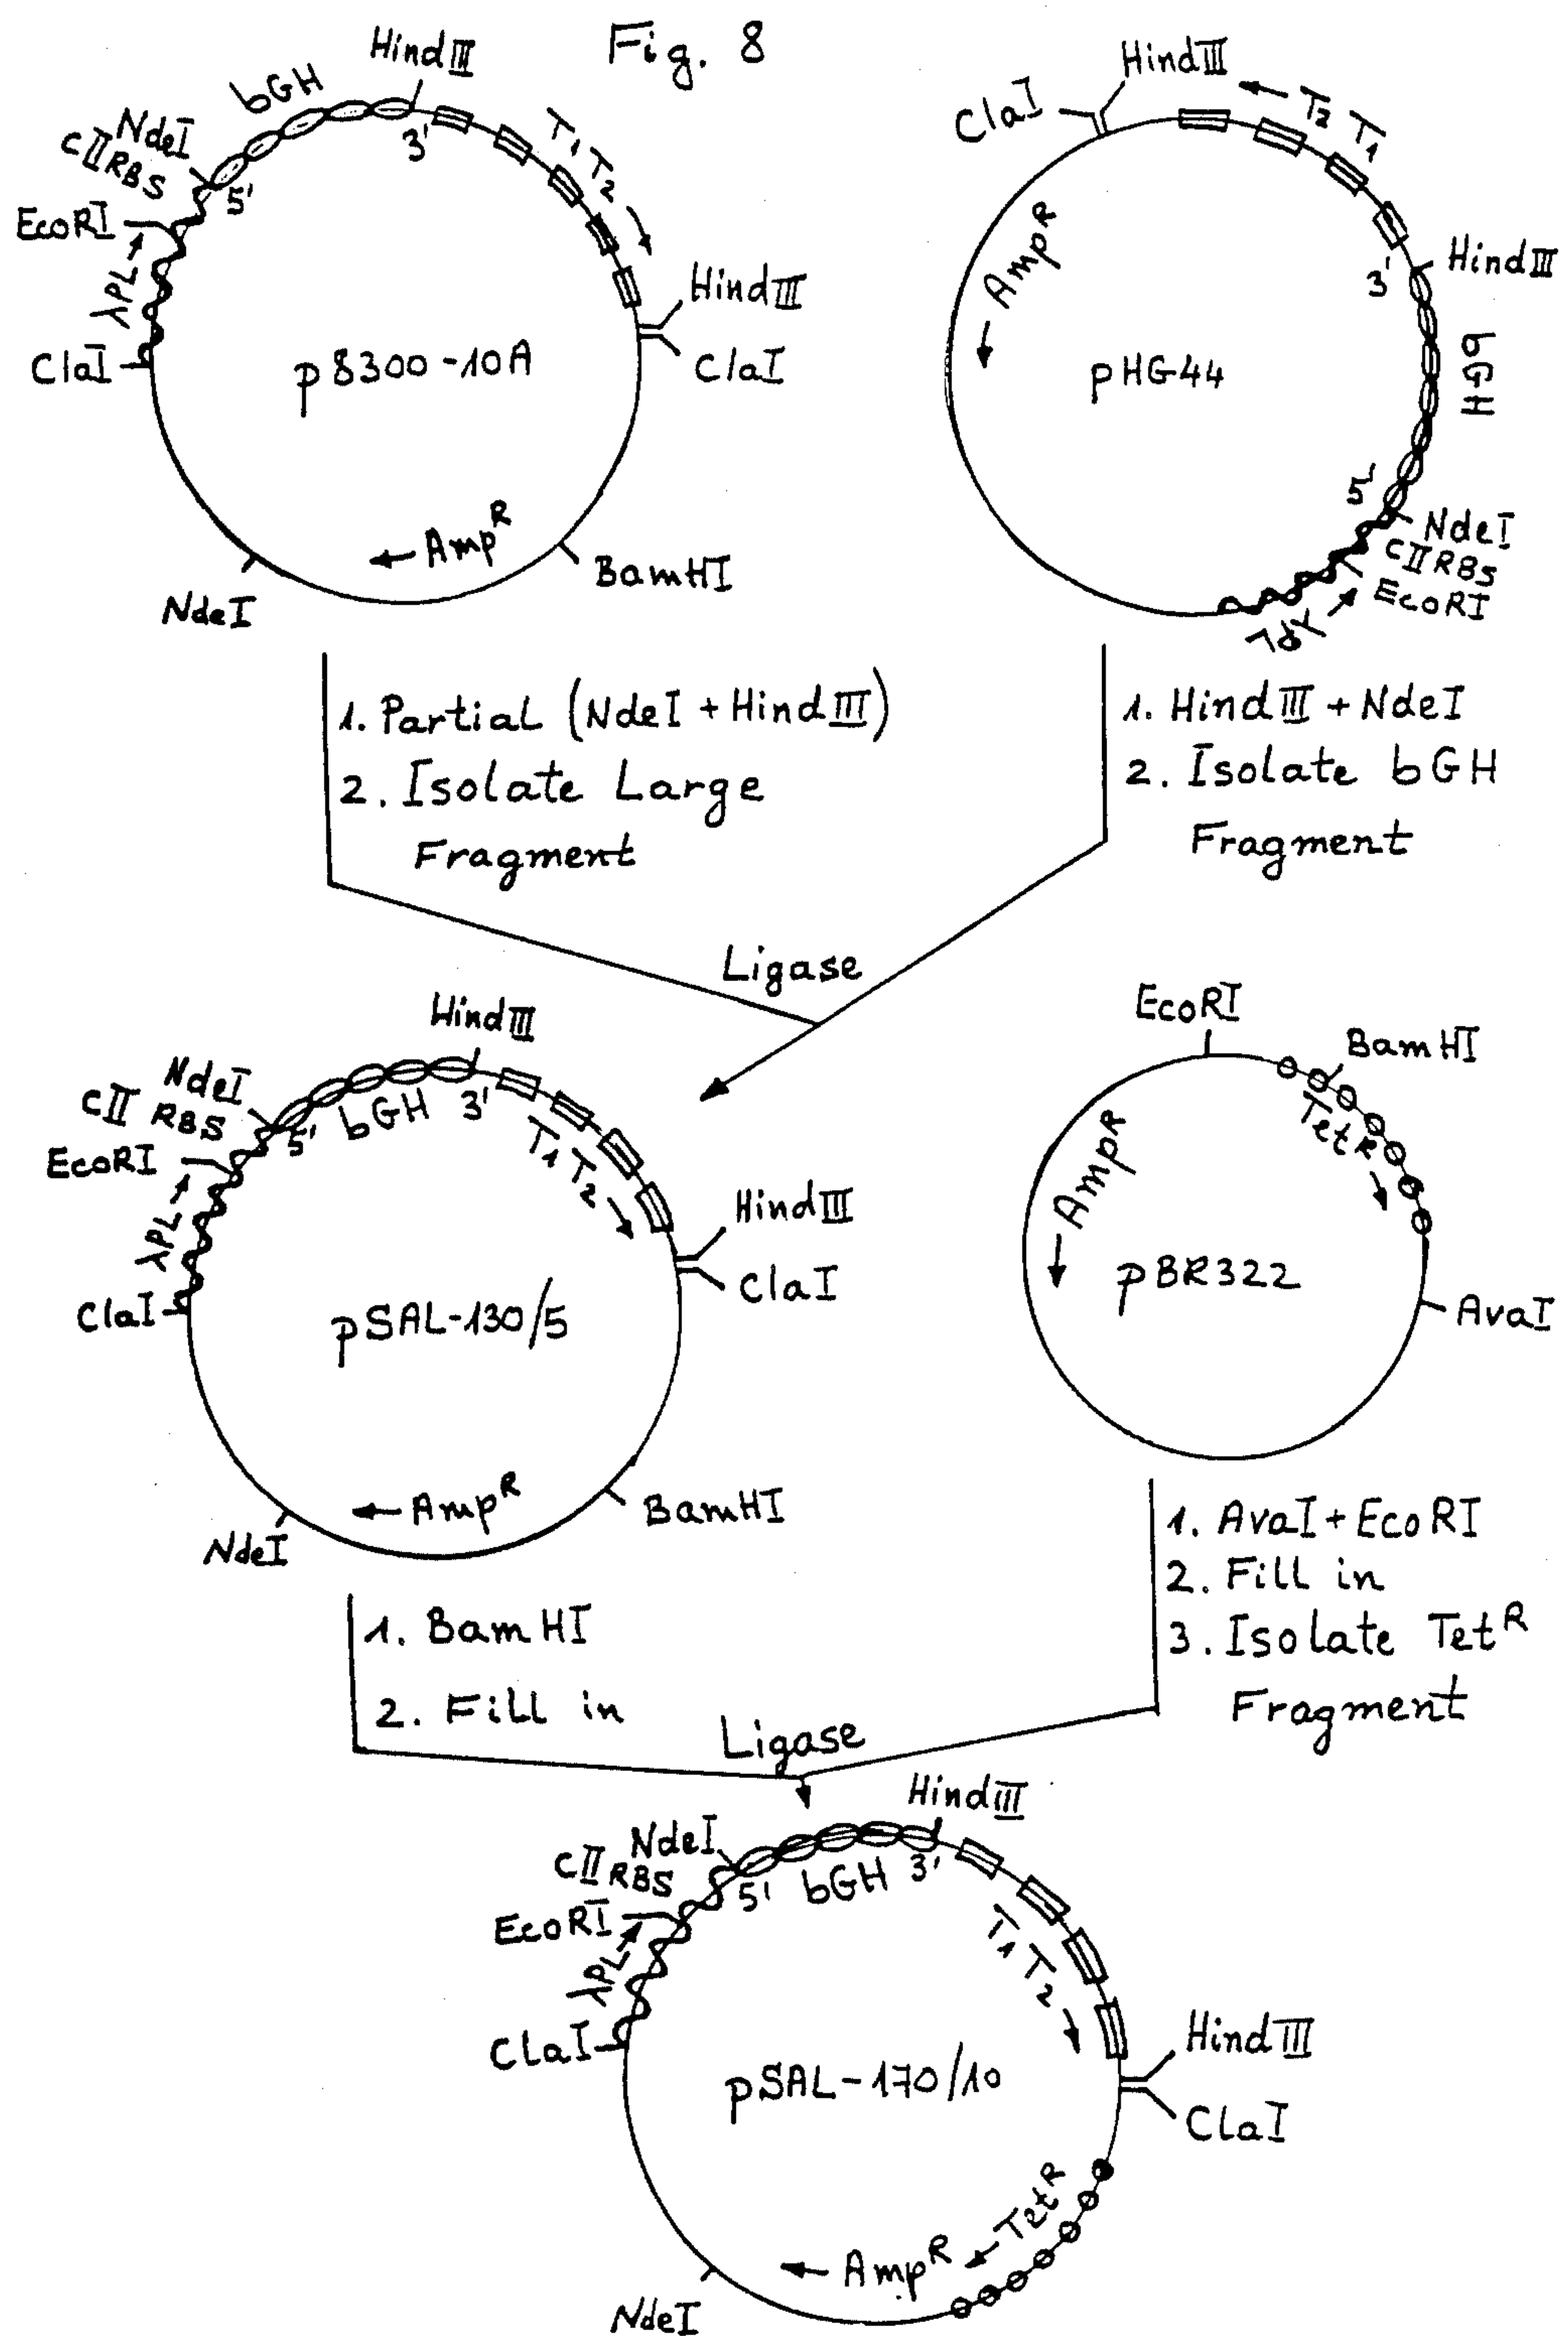 Fig. 8
HindIII
bGH
NdeI
cII RBS
5'
3'
EcoRI
λPL
ClaI
T1 T2
HindIII
ClaI
p8300-10A
AmpR
BamHI
NdeI
HindIII
ClaI
T2 T1
AmpR
HindIII
3'
pHG44
bGH
5'
NdeI
cII RBS
EcoRI
λPL
1. Partial (NdeI + HindIII)
2. Isolate Large
Fragment
1. HindIII + NdeI
2. Isolate bGH
Fragment
Ligase
HindIII
NdeI
cII RBS
5'
bGH
3'
EcoRI
λPL
ClaI
T1 T2
HindIII
ClaI
pSAL-130/5
AmpR
BamHI
NdeI
EcoRI
BamHI
TetR
AmpR
pBR322
AvaI
1. BamHI
2. Fill in
1. AvaI + EcoRI
2. Fill in
3. Isolate TetR
Fragment
Ligase
HindIII
NdeI
cII RBS
5'
bGH
3'
EcoRI
λPL
ClaI
T1 T2
HindIII
ClaI
pSAL-170/10
TetR
AmpR
NdeI